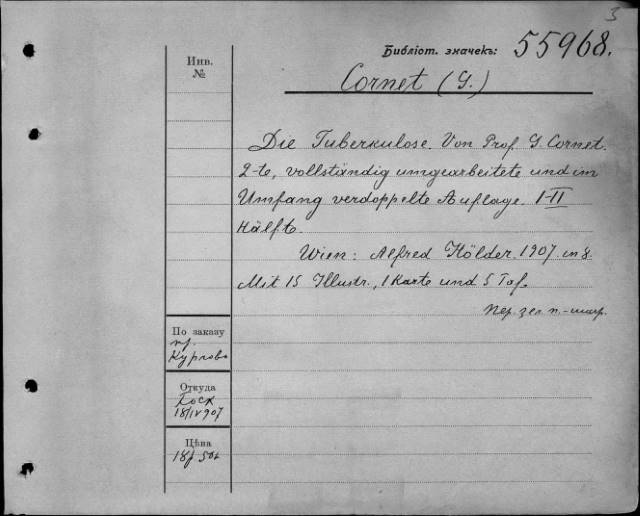 3
Библіот. значекъ: 55968.
Инв.
№
Cornet (G.)
Die Tuberkulose. Von Prof. G. Cornet.
2-te, vollständig umgearbeitete und im
Umfang verdoppelte Auflage. I-II
Hälfte.
Wien: Alfred Hölder. 1907. in 8.
Mit 15 Illustr., 1 Karte und 5 Taf.
Пер. зел. п.-шагр.
По заказу
пр.
Откуда
18/IV 907
Цѣна